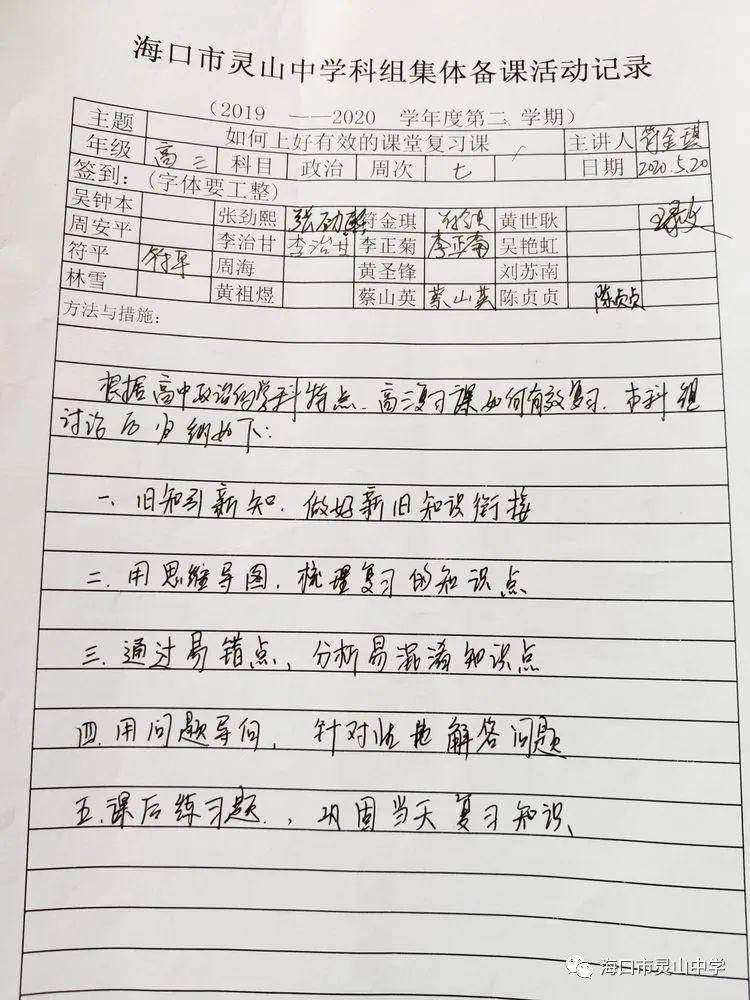 海口市灵山中学科组集体备课活动记录
（2019 ——2020 学年度第二学期）
主题 如何上好有效的课堂复习课 主讲人 符金琪
年级 高三 科目 政治 周次 七 日期 2020.5.20
签到：（字体要工整）
吴钟本 张劲熙 张劲熙 符金琪 符金琪 黄世耿
周安平 李治甘 李治甘 李正菊 李正菊 吴艳虹
符平 符平 周海 黄圣锋 刘苏南
林雪 黄祖煜 蔡山英 蔡山英 陈贞贞 陈贞贞
方法与措施：
根据高中政治的学科特点、高三复习课如何有效复习、本科组
讨论后归纳如下：
一、旧知引新知、做好新旧知识衔接
二、用思维导图、梳理复习的知识点
三、通过易错点、分析易混淆知识点
四、用问题导向、针对性地解答问题
五、课后练习题、巩固当天复习知识
海口市灵山中学